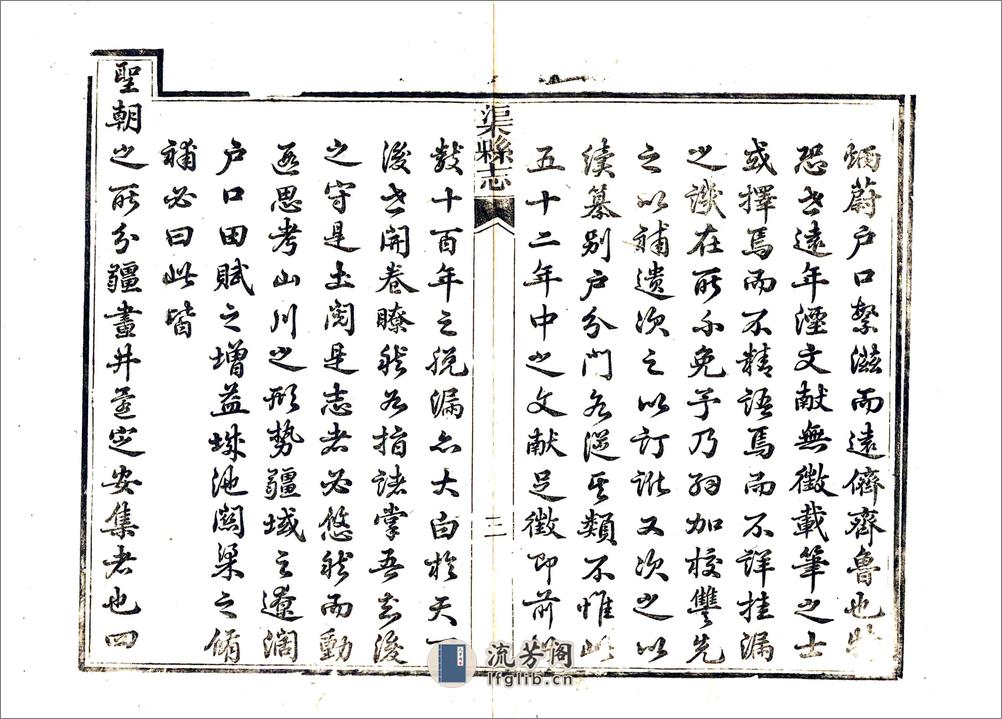 炳蔚户口繁滋而遠儕齊魯也特
恐世遠年湮文献無徵載筆之士
或擇焉而不精語焉而不詳挂漏
之譏在所不免予乃細加校讐先
之以補遺次之以訂訛又次之以
續纂别户分門各從其類不惟此
五十二年中之文献足徵即前此
渠縣志
三
數十百年之脱漏亦大白於天下
後世開卷瞭然若指諸掌吾知後
之守是土閱是志者必悠然而動
遐思考山川之形勢疆域之遼濶
户口田賦之增益城池關梁之脩
補必曰此皆
聖朝之所分疆畫井奠定安集者也四
流芳阁
lfglib.cn